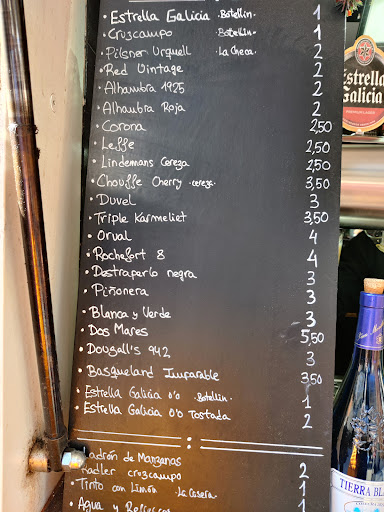 • Estrella Galicia .Botellin. 1
• Cruzcampo .Botellin. 1
• Pilsner Urquell .La Checa. 2
• Red Vintage 2
• Alhambra 1925 2
• Alhambra Roja 2
• Corona 2,50
• Leffe 2,50
• Lindemans Cereza 2,50
• Chouffe Cherry .cereza. 3,50
• Duvel 3
• Triple Karmeliet 3,50
• Orval 4
• Rochefort 8 4
• Destraperlo negra 3
• Piñonera 3
• Blanca y Verde 3
• Dos Mares 5,50
• Dougall's 942 3
• Basqueland Imparable 3,50
• Estrella Galicia 0'0 .Botellin. 1
• Estrella Galicia 0'0 Tostada 2
Ladrón de Manzanas 2
Radler Cruzcampo 1
• Tinto con Limón .La Casera. 1
• Agua y
Estrella
Galicia
TIERRA